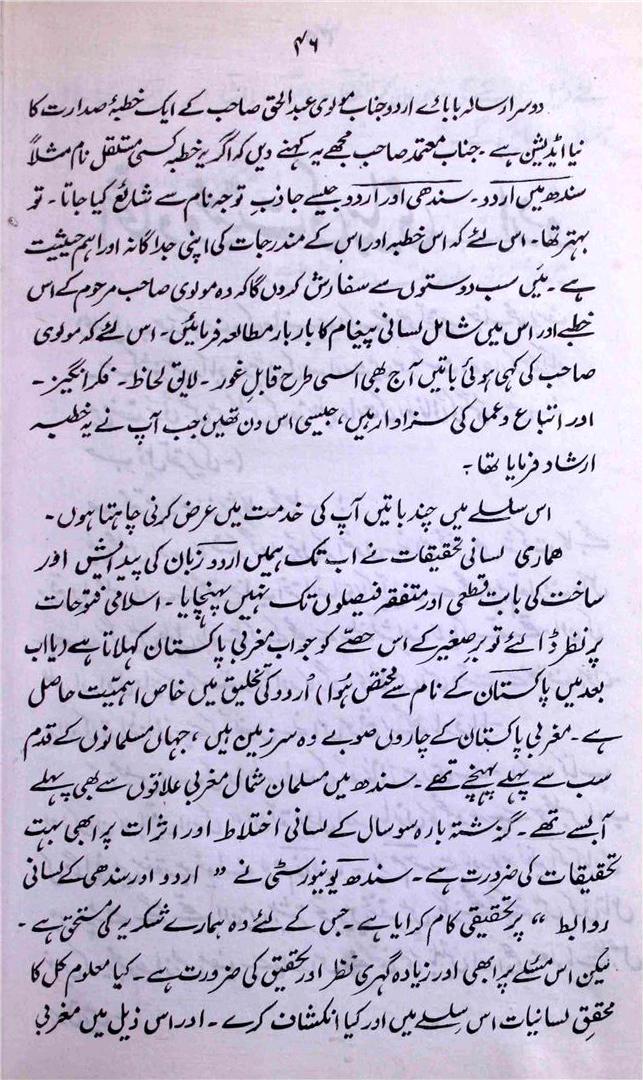 ۴۶
دوسرا رسالہ بابائے اردو جناب مولوی عبدالحق صاحب کے ایک خطبۂ صدارت کا
نیا ایڈیشن ہے۔ جناب معتمد صاحب مجھے یہ کہنے دیں کہ اگر یہ خطبہ کسی مستقل نام مثلاً
سندھ میں اردو۔ سندھی اور اردو جیسے جاذبِ توجہ نام سے شائع کیا جاتا۔ تو
بہتر تھا۔ اس لئے کہ اس خطبہ اور اس کے مندرجات کی اپنی جداگانہ اور اہم حیثیت
ہے۔ میں سب دوستوں سے سفارش کروں گا کہ وہ مولوی صاحب مرحوم کے اس
خطبے اور اس میں شامل لسانی پیغام کا بار بار مطالعہ فرمائیں۔ اس لئے کہ مولوی
صاحب کی کہی ہوئی باتیں آج بھی اسی طرح قابلِ غور۔ لایق لحاظ۔ فکر انگیز۔
اور اتباع و عمل کی سزاوار ہیں، جیسی اس دن تھیں، جب آپ نے یہ خطبہ
ارشاد فرمایا تھا۔
اس سلسلے میں چند باتیں آپ کی خدمت میں عرض کرنی چاہتا ہوں۔
ہماری لسانی تحقیقات نے اب تک ہمیں اردو زبان کی پیدائش اور
ساخت کی بابت قطعی اور متفقہ فیصلوں تک نہیں پہنچایا۔ اسلامی فتوحات
پر نظر ڈالئے تو برِصغیر کے اس حصّے کو جواب مغربی پاکستان کہلاتا ہے (یا اب
بعد میں پاکستان کے نام سے مختص ہُوا) اُردو کی تخلیق میں خاص اہمیّت حاصل
ہے۔ مغربی پاکستان کے چاروں صوبے وہ سرزمین ہیں، جہاں مسلمانوں کے قدم
سب سے پہلے پہنچے تھے۔ سندھ میں مسلمان شمال مغربی علاقوں سے بھی پہلے
آبسے تھے۔ گزشتہ بارہ سو سال کے لسانی اختلاط اور اثرات پر ابھی بہت
تحقیقات کی ضرورت ہے۔ سندھ یونیورسٹی نے ” اردو اور سندھی کے لسانی
روابط “ پر تحقیقی کام کرایا ہے۔ جس کے لئے وہ ہمارے شکریہ کی مستحق ہے۔
لیکن اس مسئلے پر ابھی اور زیادہ گہری نظر اور تحقیق کی ضرورت ہے۔ کیا معلوم کل کا
محققِ لسانیات اس سلسلے میں اور کیا انکشاف کرے۔ اور اس ذیل میں مغربی